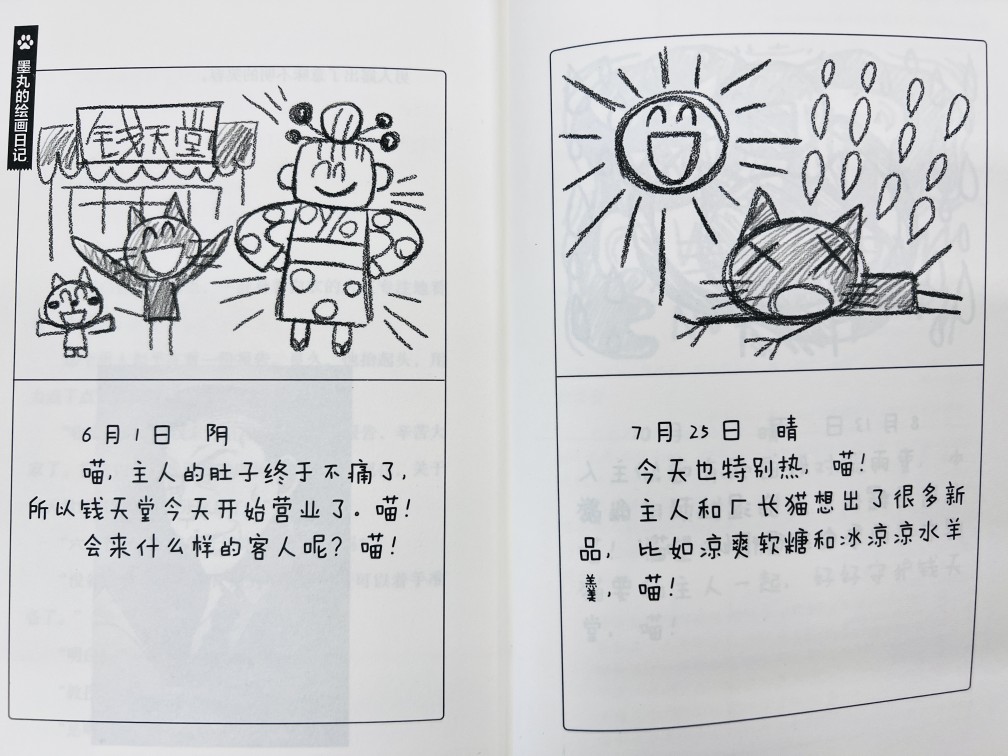 墨丸的绘画日记
钱天堂
6月1日 阴
喵，主人的肚子终于不痛了，
所以钱天堂今天开始营业了。喵！
会来什么样的客人呢？喵！
7月25日 晴
今天也特别热，喵！
主人和厂长猫想出了很多新
品，比如凉爽软糖和冰凉凉水羊
羹，喵！